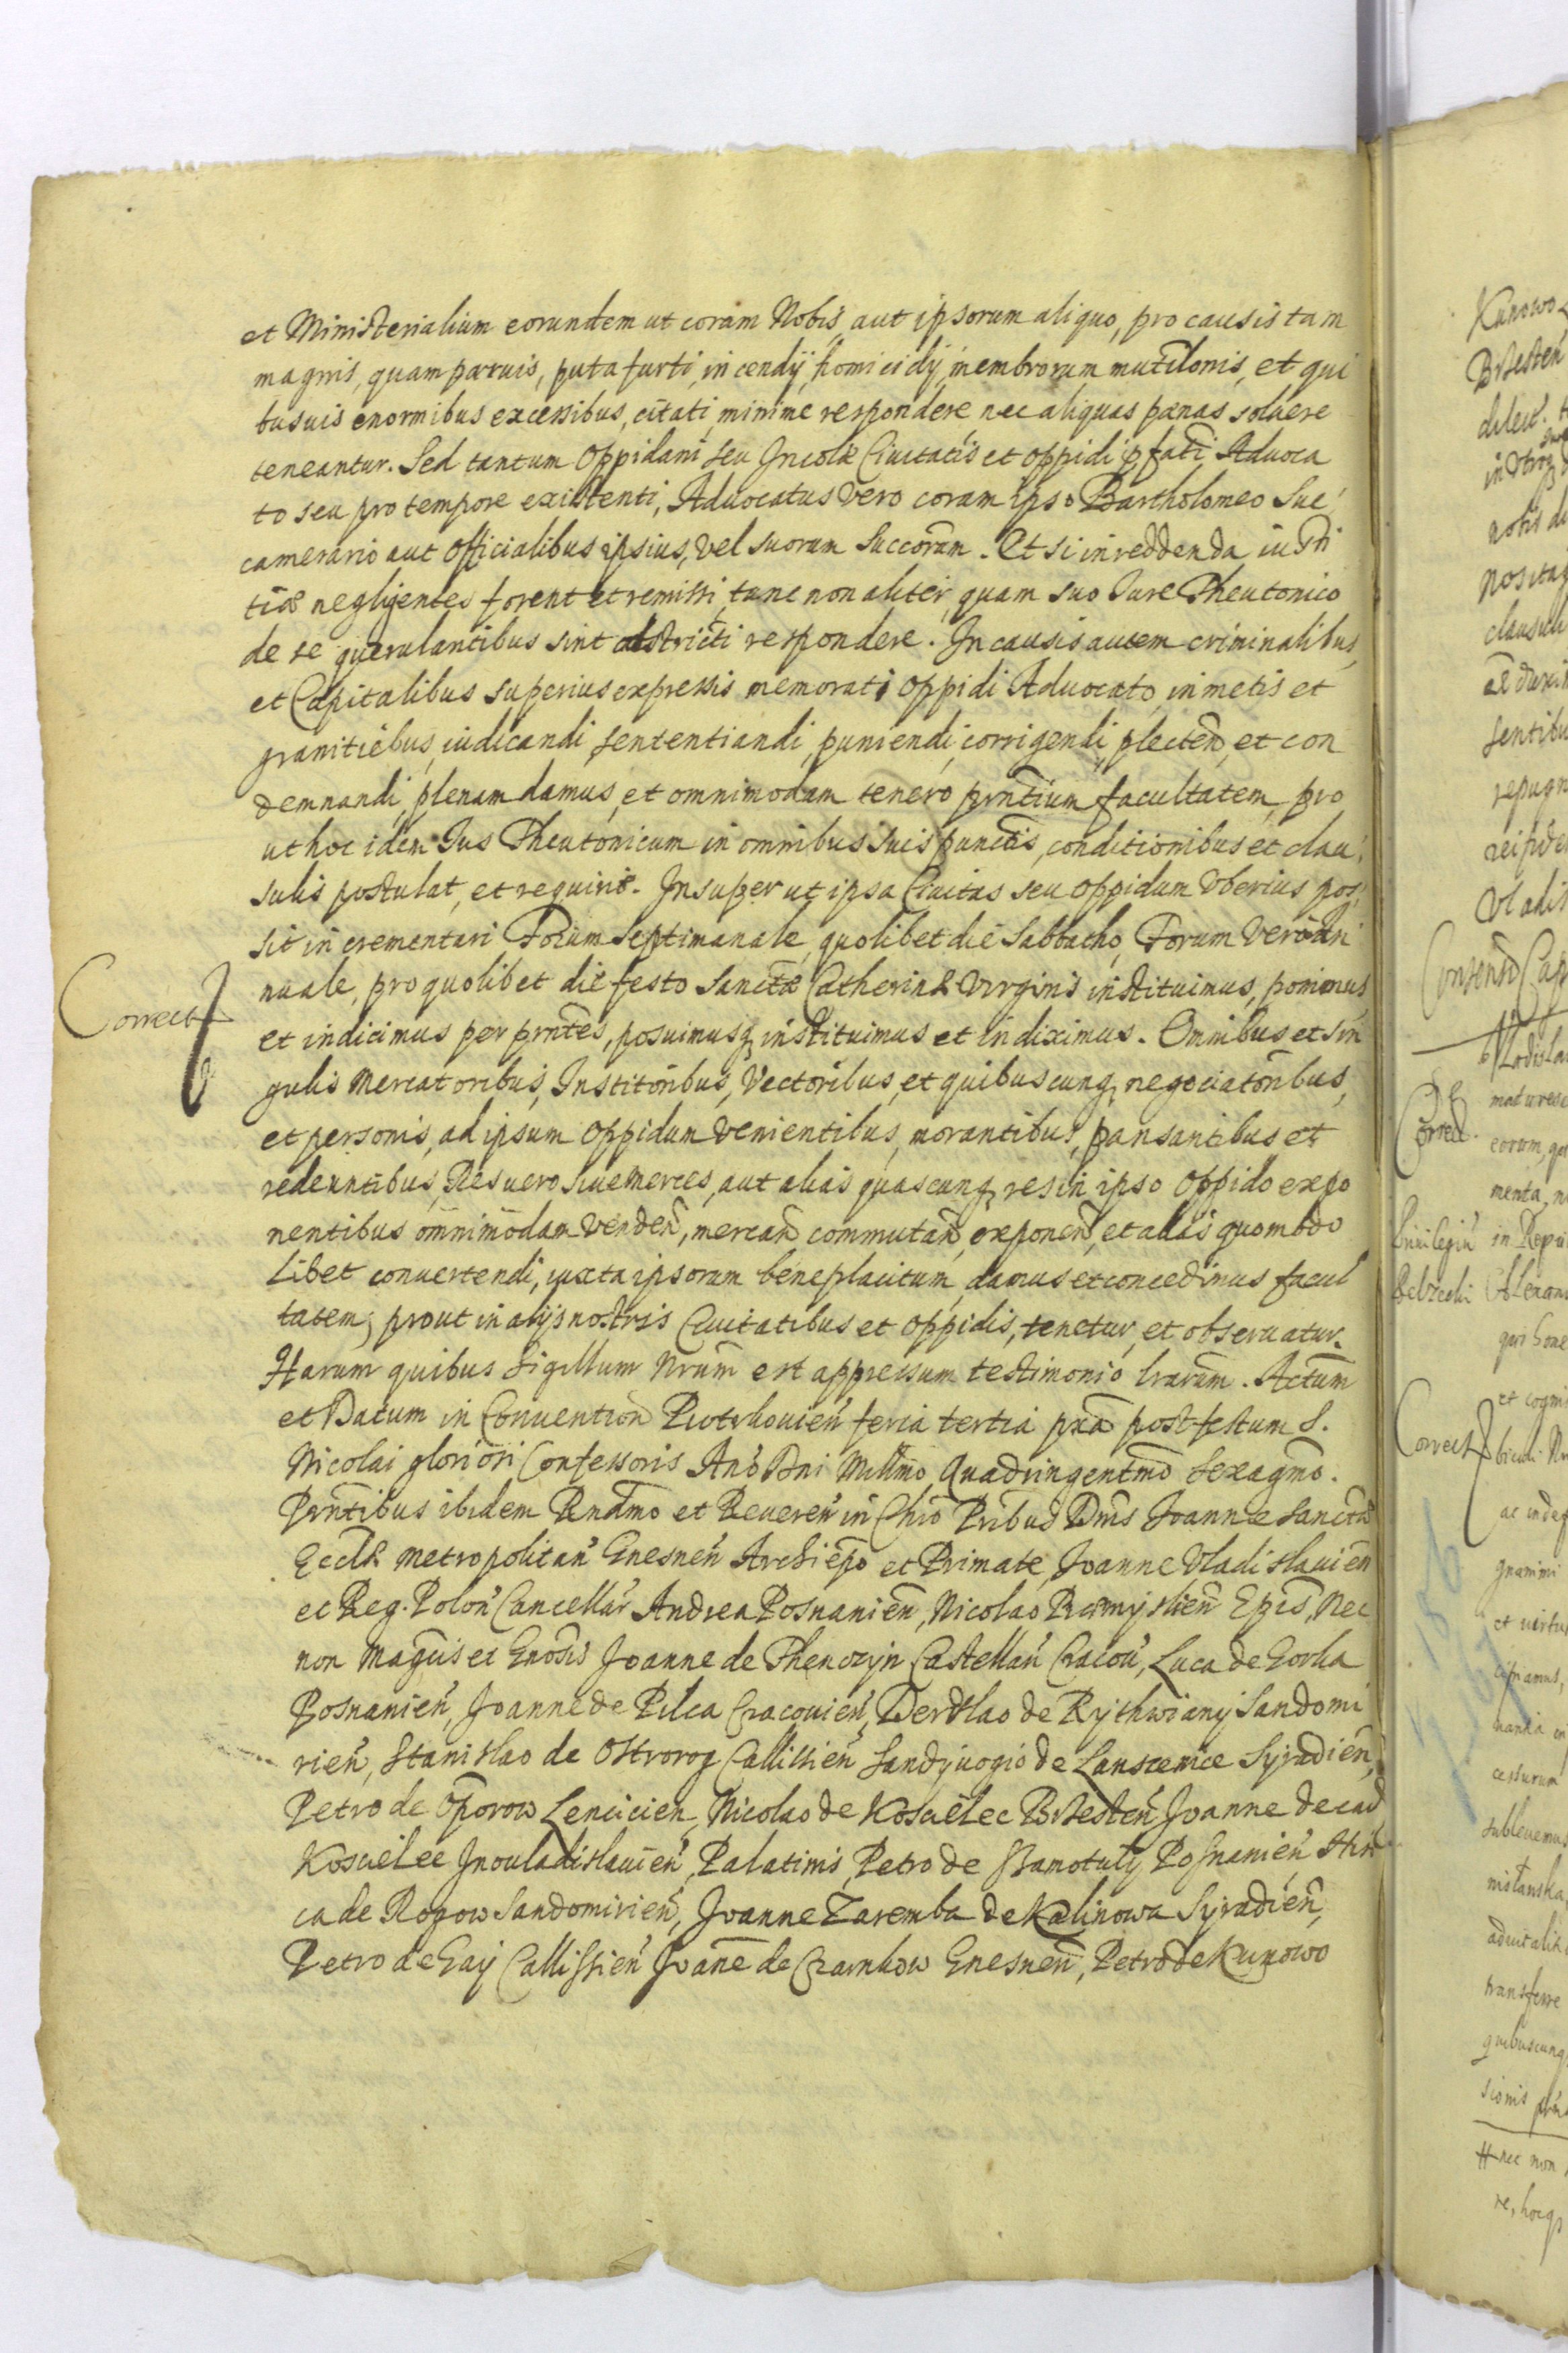 et Ministerialium eorundem ut coram Nobis aut ipsorum aliquo, pro causis tam
magnis, quam paruis, puta furti, incendÿ, homicidÿ, membrorum mutilonis, et qui
busuis enormibus excessibus, citati, minime respondere, nec aliquas pænas soluere
teneantur. Sed tantum Oppidani seu Incolæ Ciuitatis et oppidi pfati Aduoca
to seu pro tempore existenti, Aduocatus vero coram ipso Bartholomeo Suc
camerario aut Officialibus ipsius, vel suorum Succorum. Et si in reddenda iusti
tiæ negligentes forent et remissi, tunc non aliter, quam suo Iure Theutonico
de se querulantibus sint abstricti respondere. In causis autem criminalibus,
et Capitalibus superius expressis memorati oppidi Aduocato, in metis et
granitiebus, iudicandi, sententiandi, puniendi, corrigendi, plecten̄, et con
demnandi, plenam damus, et omnimodam tenero prntium facultatem, pro
ut hoc idem Ius Theutonicum in omnibus suis punctis, conditionibus et clau,
sulis postulat, et requirit. Insuper ut ipsa Ciuitas seu oppidum vberius pos,
sit in crementari Forum Septimanale, quolibet die Sabbatho, Forum vero An
nuale, pro quolibet die festo Sanctæ Catherinæ Virginis instituimus, ponimus
Correct
et indicimus per prntes, posuimusq instituimus et indiximus. Omnibus et sin
gulis Mercatoribus, Institoribus, Vectoribus, et quibuscunq negociatoribus,
et personis, ad ipsum oppidum venientibus, morantibus, pansantibus et
redeuntibus, Res uero siue Merces, aut alias quascunq res in ipso oppido expo
nentibus omnimodam venden̄, mercan̄ commutan̄, exponen̄, et alias quomodo
Libet conuertendi, iuxta ipsorum beneplacitum, damus et concedimus facul
tatem, prout in alijs nostris Ciuitatibus et oppidis, tenetur, et obseruatur.
Harum quibus Sigillum Nrum est appressum testimonio lrarum. Actum
et Datum in Conuention̄ Piotrkouien̄ feria tertia pxa post festum S.
Nicolai gloriosi Confessoris Ano Dni Millmo Quadringentmo Sexagmo.
Prntibus ibidem Rndmo et Reueren̄ in Chro Pribus Dnis Joanne Sanctæ
Eccliæ Metropolitan̄ Gnesnen̄ Archiepo et Primate, Joanne Vladislauien̄
et Reg. Polon̄ Cancellar̄ Andrea Posnanien̄, Nicolao Premyslien̄ Epis, Nec
non Magcis et Gnosis Joanne de Thenczyn Castellan̄ Cracou̇, Luca de Gorka
Posnanien̄, Joanne de Pilca Cracouien̄, Derslao de Rythwiany Sandomi
rien̄, Stanislao de Ostrorog Callissien̄ Sandyuogio de Lanscenice Syradien̄,
Petro de Oporow Lencicien, Nicolao de Koscielec Brzesten̄ Joanne de ead
Koscielec Jnouladislauien̄, Palatinis, Petro de Sramotuly Posnanien̄ Hin
ca de Rogow Sandomirien̄, Joanne Zaremba de Kalinowa Syradien̄,
Petro de Gay Callissien̄ Joāne de Czarnkow Gnesnen̄, Petro de Kunowo
Kunowo
Brzesten̄
Nositaq
clausuli
sentibu
repugn
Vladis
Consens Cap
Vladisla
Correct.
eorum, qu
menta, n
Priuilegiu
in Repu
Belzecki
et cogni
Correct
et virtu
transferre
quibuscunq
sionis
nec non
re, hocq